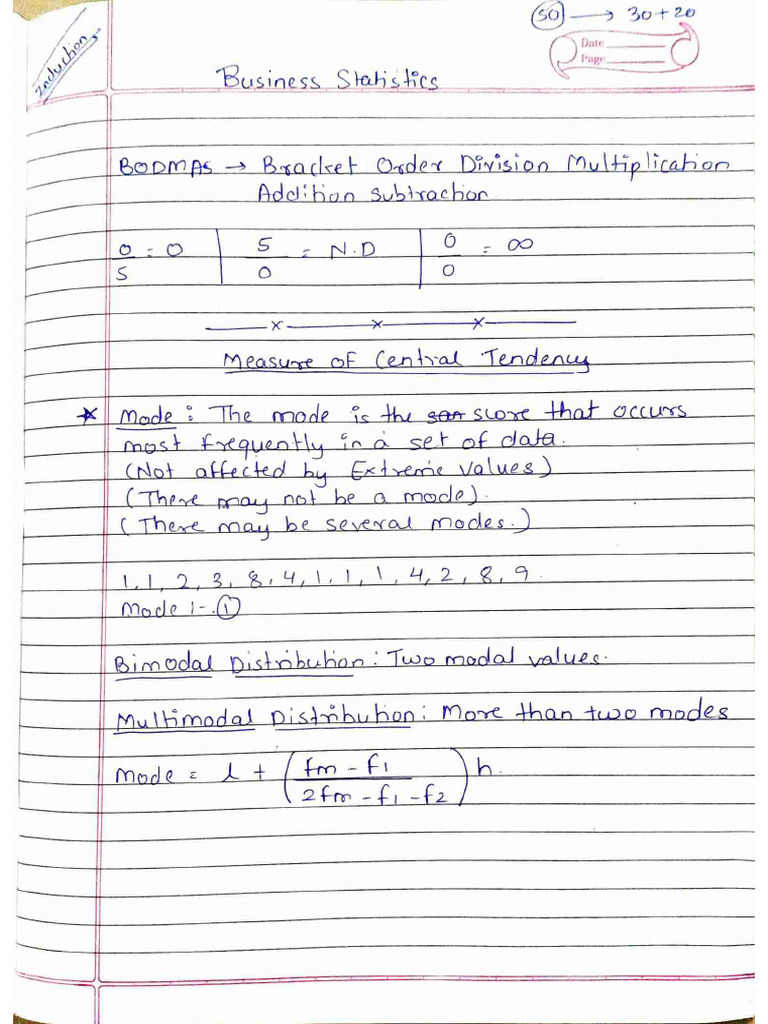 50 → 30+20
Induction
Date
Page
Business Statistics
BODMAS → Bracket Order Division Multiplication
Addition Subtraction
0/5 = 0 | 5/0 = N.D | 0/0 = ∞
Measure of Central Tendency
* Mode : The mode is the score that occurs
most frequently in a set of data.
(Not affected by Extreme values)
(There may not be a mode).
(There may be several modes.)
1, 1, 2, 3, 8, 4, 1, 1, 1, 4, 2, 8, 9.
Mode :- 1
Bimodal Distribution : Two modal values.
Multimodal Distribution : More than two modes
Mode = l + ( fm - f1 / 2fm - f1 - f2 ) h.